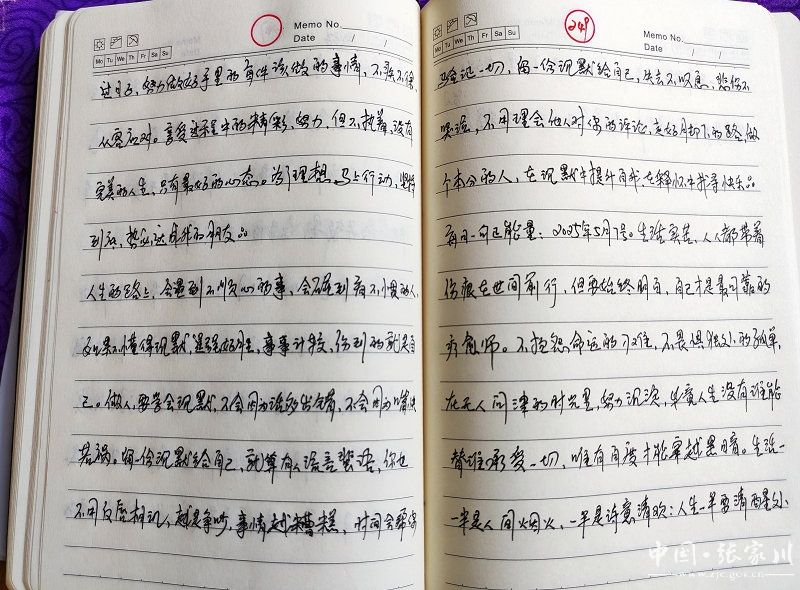 Memo No.
Date / /
Mo Tu We Th Fr Sa Su
努力做好手里的每件该做的事情，不
从容应对。享受过程中的精彩，努力，但不执着，没有
完美的人生，只有最好的心态。为了理想，马上行动，坚持
到底，势必达成我的朋友。
人生的路上，会遇到不顺心的事，会碰到看不惯的人，
如果不懂得沉默，逞强好胜，事事计较，伤到的就是自
己。做人，要学会沉默，不会因为话多出错，不会因为嘴快
若祸。留一份沉默给自己，就算有人流言蜚语，你也
不用反唇相讥，越是争吵，事情越糟糕，时间会帮你
249
Memo No.
Date / /
Mo Tu We Th Fr Sa Su
验证一切，留一份沉默给自己，失去不叹息，悲伤不
哭泣，不用理会他人对你的评论，走好脚下的路，做
个本分的人，在沉默中提升自我，在释怀中找寻快乐。
每日一句正能量：2025年5月7号。生活实苦，人人都带着
伤痕在世间前行，但要始终明白，自己才是最可靠的
疗愈师。不抱怨命运的刁难，不畏惧独处的孤单，
在无人问津的时光里，努力沉淀，毕竟人生没有谁能
替谁承受一切，唯有自度才能穿越黑暗。生活一
一半是人间烟火，一半是诗意清欢：人生一半要清醒
中国·张家川
www.zjc.gov.cn